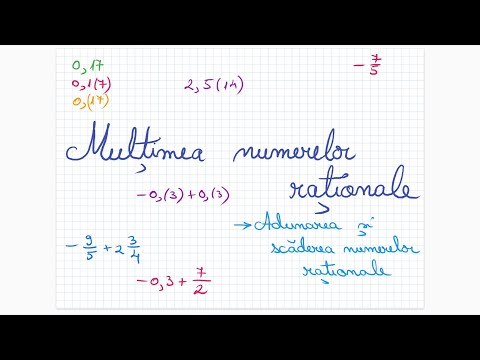 0,17
0,1(7)
0,(17)
2,5(14)
- 7/5
Mulțimea numerelor
raționale
-0,(3)+0,(3)
→ Adunarea și
scăderea numerelor
raționale
- 9/5 + 2 3/4
-0,3 + 7/2